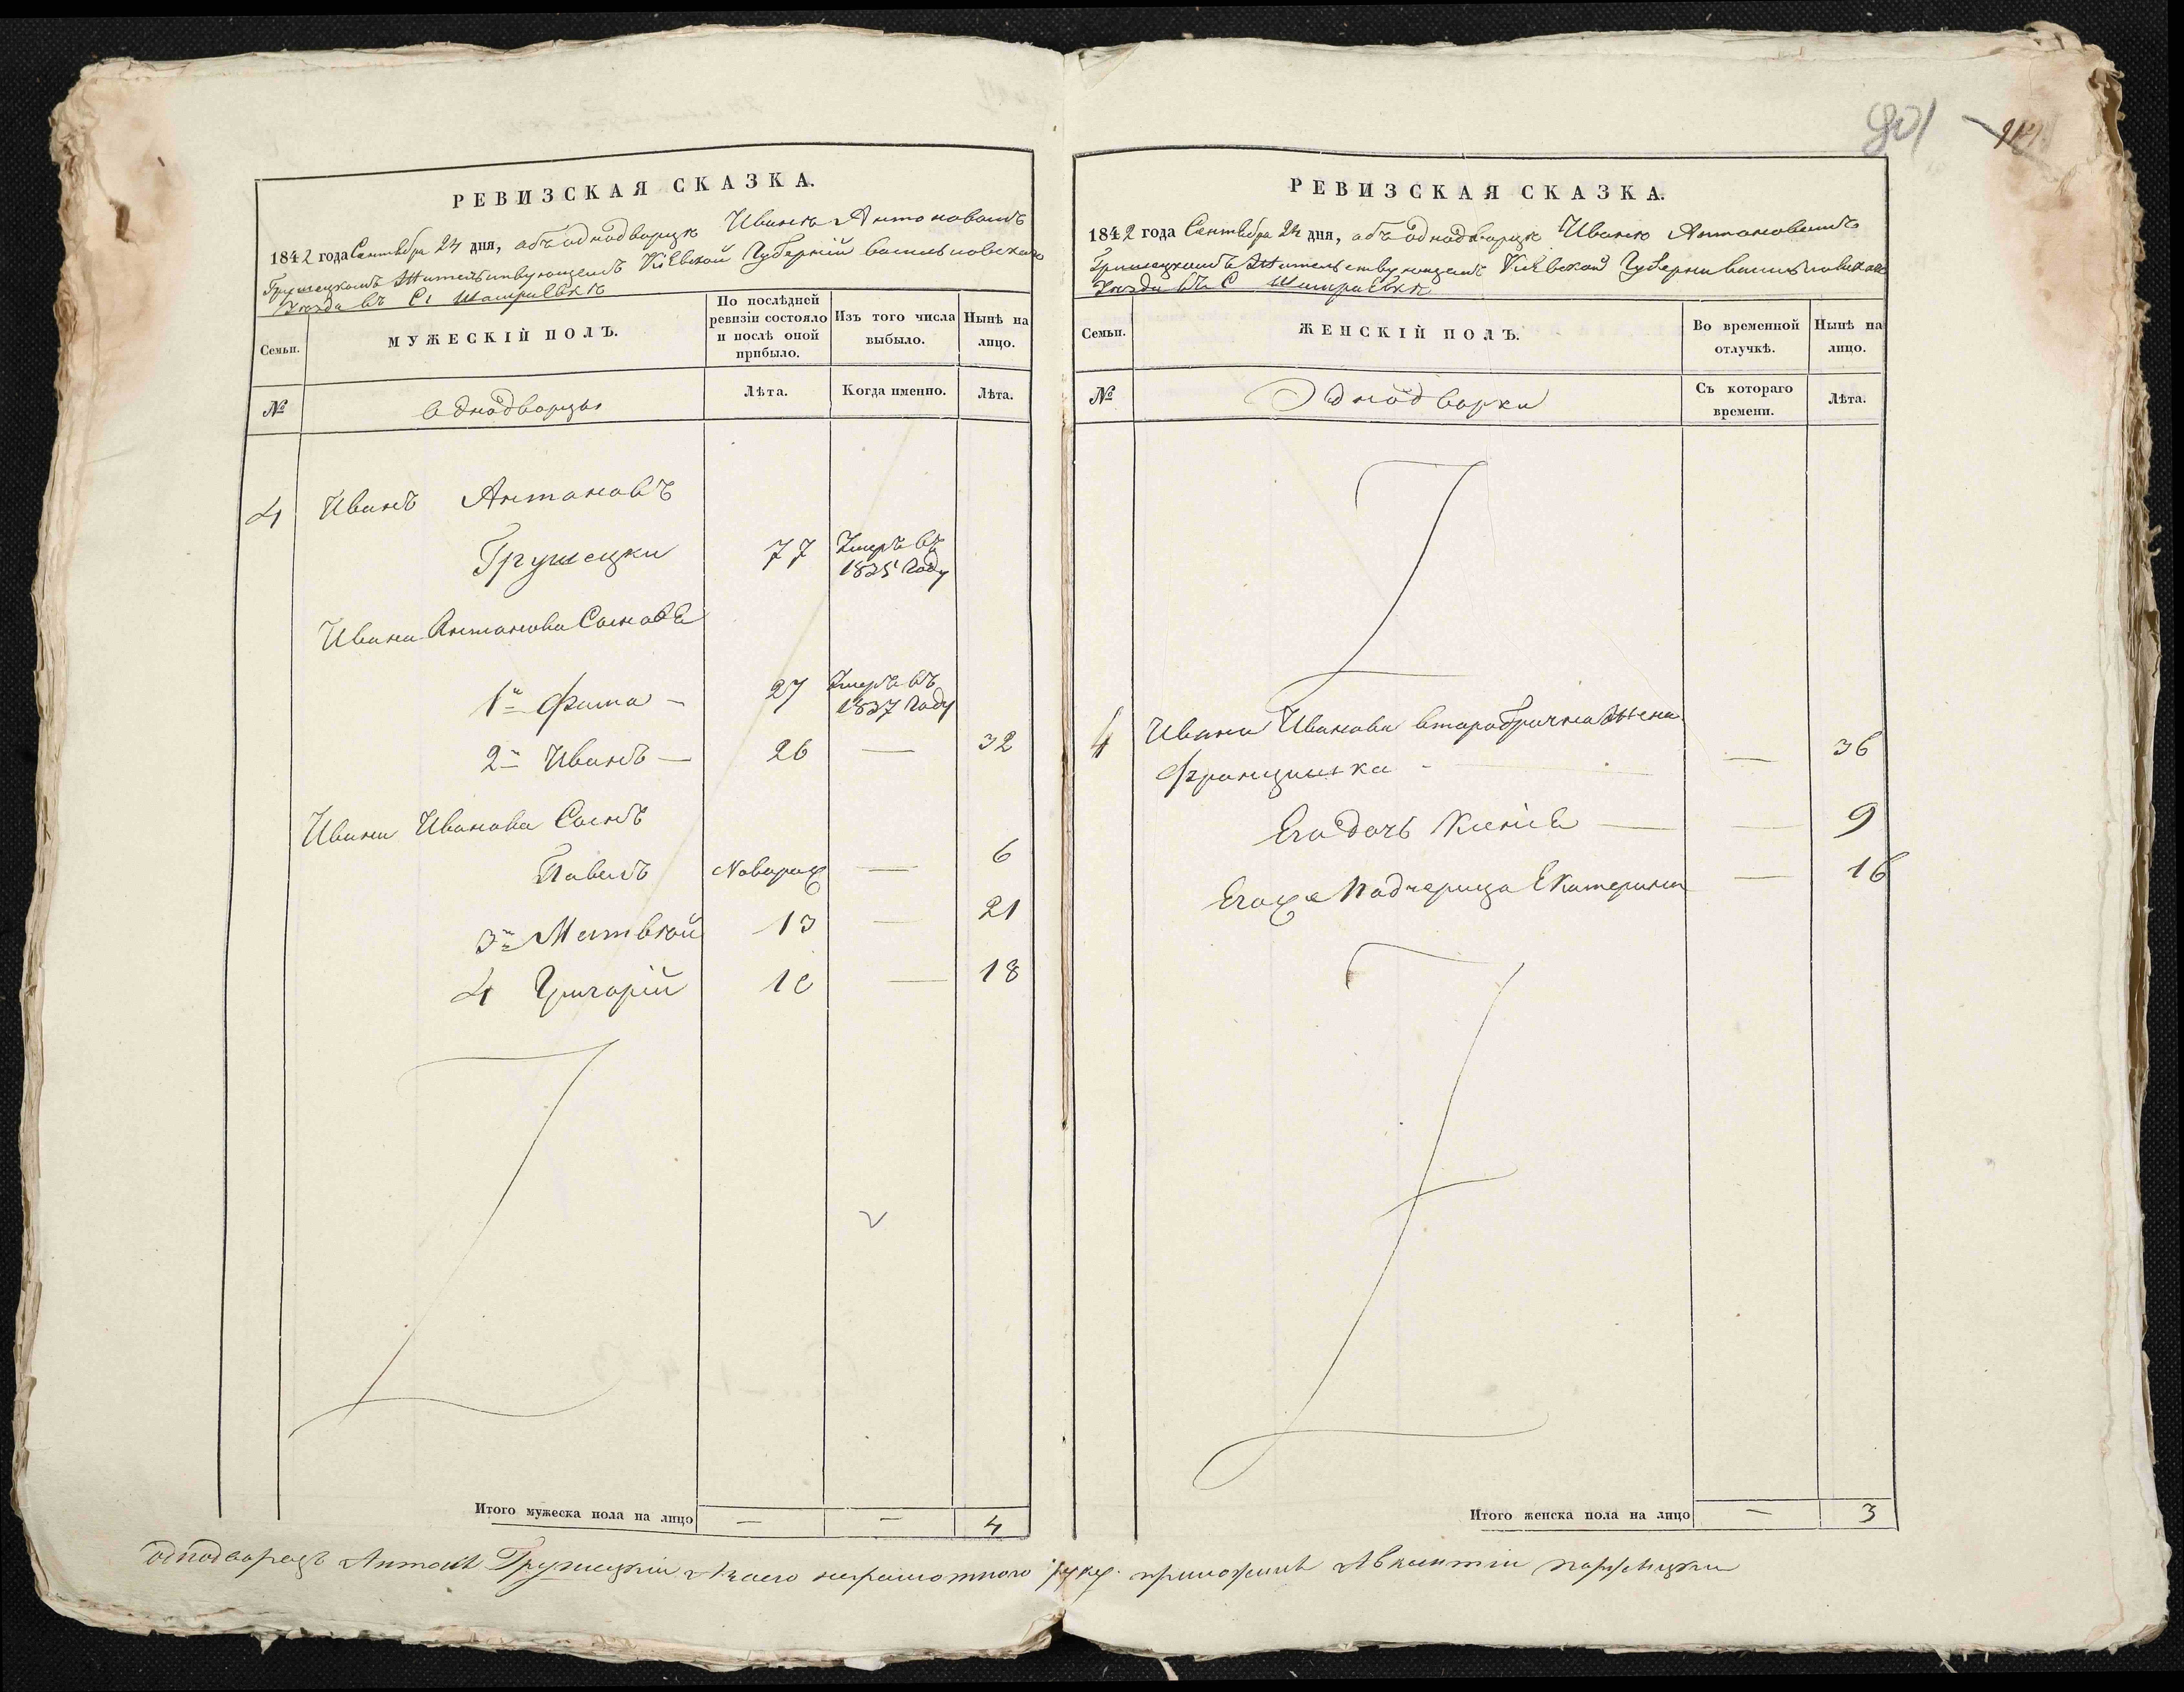 801
РЕВИЗСКАЯ СКАЗКА.
1842 года Сентября 24 дня, объ однодворцѣ Иванѣ Антоновомъ
Грушецкомъ Жительствующемъ Кіевской Губерніи Васильковскаго
Уѣзда въ С.
Семьи.
МУЖЕСКІЙ ПОЛЪ.
По послѣдней ревизіи состояло и послѣ оной прибыло.
Изъ того числа выбыло.
Нынѣ на лицо.
№
однодворцы
Лѣта.
Когда именно.
Лѣта.
4 Иванъ Антоновъ
Грушецки 77 Умеръ въ
1835 году
Ивана Антонова Сыновя
1й Фома – 27 Умеръ въ
1837 году
2й Иванъ — 26 — 32
Ивана Иванова Сынъ
Павелъ Новорож — 6
3й Матвѣй 13 — 21
4 Григорій 10 — 18
Итого мужеска пола на лицо — — 4
РЕВИЗСКАЯ СКАЗКА.
1842 года Сентября 24 дня, объ однодворцѣ Иванѣ Антоновомъ
Грушецкомъ Жительствующемъ Кіевской Губерни Васильковскаго
Уѣзда въ С
Семьи.
ЖЕНСКІЙ ПОЛЪ.
Во временной отлучкѣ.
Нынѣ на лицо.
№
Однодворки
Съ котораго времени.
Лѣта.
4 Ивана Иванова второбрачна Жена
Францишка - — 36
Его дочь — — 9
Егожъ Падчерица Екатерина — 16
Итого женска пола на лицо — 3
однодворецъ Антонъ Грушецкій а за его неграмотного руку приложилъ